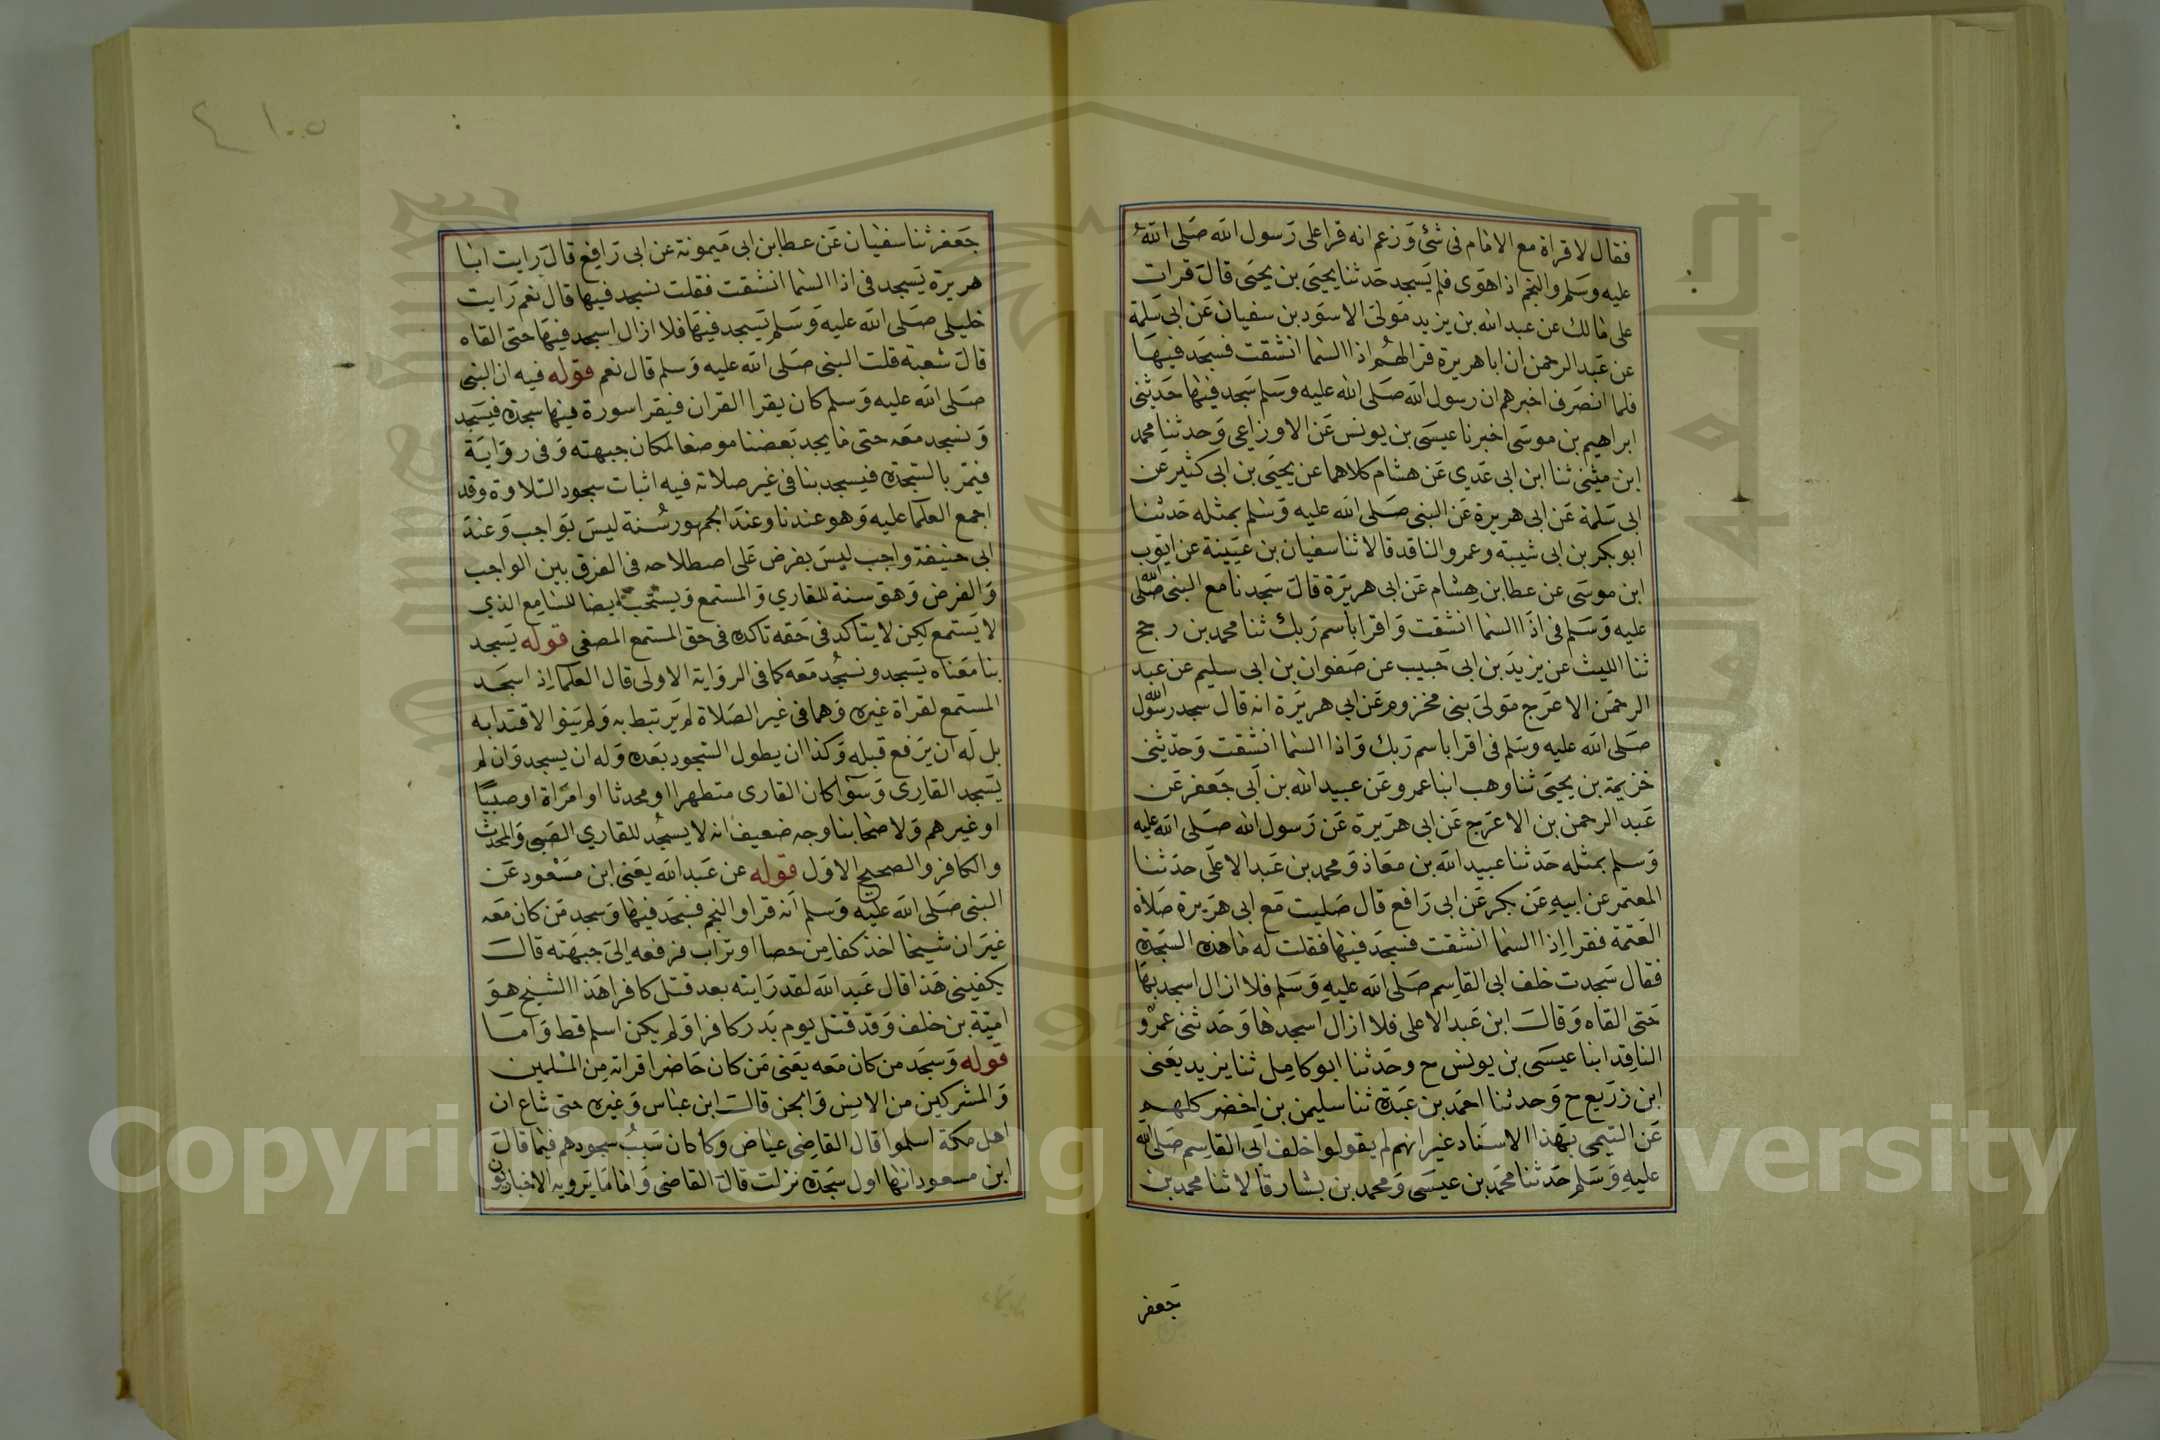 فقال لا قراة مع الامام في شئ وزعم انه قرا على رسول الله صلى الله
عليه وسلم والنجم اذا هوى فلم يسجد حدثنا يحيى بن يحيى قال قرات
على مالك عن عبد الله بن يزيد مولى الاسود بن سفيان عن ابي سلمة
عن عبد الرحمن ان ابا هريرة قرا لهم اذا السما انشقت فسجد فيها
فلما انصرف اخبرهم ان رسول الله صلى الله عليه وسلم سجد فيها حدثني
ابراهيم بن موسى اخبرنا عيسى بن يونس عن الاوزاعي وحدثنا محمد
ابن مثنى ثنا ابن ابي عدي عن هشام كلاهما عن يحيى بن ابي كثير عن
ابي سلمة عن ابي هريرة عن النبي صلى الله عليه وسلم بمثله حدثنا
ابو بكر بن ابي شيبة وعمرو الناقد قالا ثنا سفيان بن عيينة عن ايوب
ابن موسى عن عطا بن هشام عن ابي هريرة قال سجدنا مع النبي صلى الله
عليه وسلم في اذا السما انشقت واقرا باسم ربك ثنا محمد بن رمح
ثنا الليث عن يزيد بن ابي حبيب عن صفوان بن ابي سليم عن عبد
الرحمن الاعرج مولى بني مخزوم عن ابي هريرة انه قال سجد رسول الله
صلى الله عليه وسلم في اقرا باسم ربك واذا السما انشقت وحدثني
خزيمة بن يحيى ثنا وهب ابنا عمرو عن عبيد الله بن ابي جعفر عن
عبد الرحمن بن الاعرج عن ابي هريرة عن رسول الله صلى الله عليه
وسلم بمثله حدثنا عبيد الله بن معاذ ومحمد بن عبد الاعلى حدثنا
المعتمر عن ابيه عن بكر عن ابي رافع قال صليت مع ابي هريرة صلاة
العتمة فقرا اذا السما انشقت فسجد فيها فقلت له ما هذه السجدة
فقال سجدت خلف ابي القاسم صلى الله عليه وسلم فلا ازال اسجد بها
حتى القاه وقال ابن عبد الاعلى فلا ازال اسجدها وحدثني عمرو
الناقد ابنا عيسى بن يونس ح وحدثنا ابو كامل ثنا يزيد يعني
ابن زريع ح وحدثنا احمد بن عبدة ثنا سليمن بن اخضر كلهم
عن التيمي بهذا الاسناد غير انهم لم يقولوا خلف ابي القاسم صلى الله
عليه وسلم حدثنا محمد بن عيسى ومحمد بن بشار قالا ثنا محمد بن
جعفر
جعفر ثنا سفيان عن عطا بن ابي ميمونة عن ابي رافع قال رايت ابا
هريرة يسجد في اذا السما انشقت فقلت نسجد فيها قال نعم رايت
خليلي صلى الله عليه وسلم يسجد فيها فلا ازال اسجد فيها حتى القاه
قال شعبة قلت النبي صلى الله عليه وسلم قال نعم قوله فيه ان النبي
صلى الله عليه وسلم كان يقرا القران فيقرا سورة فيها سجدة فيسجد
ونسجد معه حتى ما يجد بعضنا موضعا لمكان جبهته وفي رواية
فيمر بالسجدة فيسجد بنا في غير صلاته فيه اثبات سجود التلاوة وقد
اجمع العلما عليه وهو عندنا وعند الجمهور سنة ليس بواجب وعند
ابي حنيفة واجب ليس بفرض على اصطلاحه في الفرق بين الواجب
والفرض وهو سنة للقاري والمستمع ويستحب ايضا للسامع الذي
لا يستمع لكن لا يتاكد في حقه تاكده في حق المستمع المصغي قوله يسجد
بنا معناه يسجد ونسجد معه كما في الرواية الاولى قال العلما اذا سجد
المستمع لقراة غيره وهما في غير الصلاة لم يرتبط به ولم ينو الاقتدا به
بل له ان يرفع قبله وكذا ان يطول السجود بعده وله ان يسجد وان لم
يسجد القارى وسوا كان القارى متطهرا او محدثا او امراة او صبيا
او غيرهم ولاصحابنا وجه ضعيف انه لا يسجد للقاري الصبي والمحدث
والكافر والصحيح الاول قوله عن عبد الله يعني ابن مسعود عن
النبي صلى الله عليه وسلم انه قرا والنجم فسجد فيها وسجد من كان معه
غير ان شيخا اخذ كفا من حصا او تراب فرفعه الى جبهته قال
يكفيني هذا قال عبد الله لقد رايته بعد قتل كافرا هذا الشيخ هو
امية بن خلف وقد قتل يوم بدر كافرا ولم يكن اسلم قط واما
قوله وسجد من كان معه يعني من كان حاضرا قراته من المسلمين
والمشركين من الانس والجن قال ابن عباس وغيره حتى شاع ان
اهل مكة اسلموا قال القاضي عياض وكان سبب سجودهم فيما قال
ابن مسعود انها اول سجدة نزلت قال القاضي واما ما يرويه الاخباريون
Copyright © King Saud University